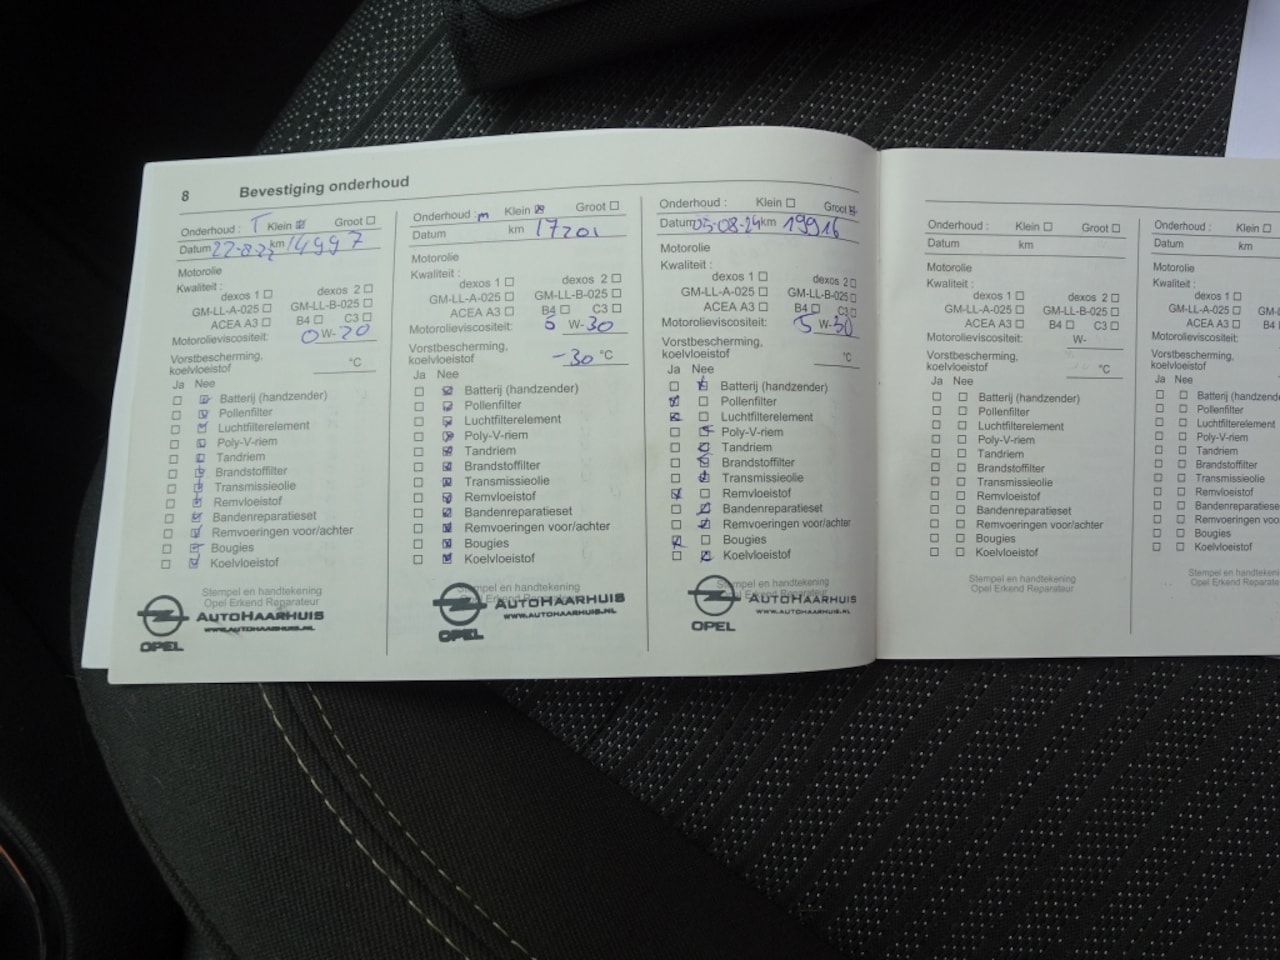 8 Bevestiging onderhoud
Onderhoud : T Klein Groot
Datum 22-8-22 km 14997
Motorolie
Kwaliteit :
dexos 1 dexos 2
GM-LL-A-025 GM-LL-B-025
ACEA A3 B4 C3
Motorolieviscositeit: 0 W- 20
Vorstbescherming,
koelvloeistof °C
Ja Nee
Batterij (handzender)
Pollenfilter
Luchtfilterelement
Poly-V-riem
Tandriem
Brandstoffilter
Transmissieolie
Remvloeistof
Bandenreparatieset
Remvoeringen voor/achter
Bougies
Koelvloeistof
Stempel en handtekening
Opel Erkend Reparateur
AUTOHAARHUIS
WWW.AUTOHAARHUIS.NL
OPEL
Onderhoud : m Klein Groot
Datum km 17201
Motorolie
Kwaliteit :
dexos 1 dexos 2
GM-LL-A-025 GM-LL-B-025
ACEA A3 B4 C3
Motorolieviscositeit: 5 W-30
Vorstbescherming,
koelvloeistof -30 °C
Ja Nee
Batterij (handzender)
Pollenfilter
Luchtfilterelement
Poly-V-riem
Tandriem
Brandstoffilter
Transmissieolie
Remvloeistof
Bandenreparatieset
Remvoeringen voor/achter
Bougies
Koelvloeistof
Stempel en handtekening
Opel Erkend Reparateur
AUTOHAARHUIS
WWW.AUTOHAARHUIS.NL
OPEL
Onderhoud : Klein Groot
Datum 05-08-24 km 19916
Motorolie
Kwaliteit :
dexos 1 dexos 2
GM-LL-A-025 GM-LL-B-025
ACEA A3 B4 C3
Motorolieviscositeit: 5 W-30
Vorstbescherming,
koelvloeistof °C
Ja Nee
Batterij (handzender)
Pollenfilter
Luchtfilterelement
Poly-V-riem
Tandriem
Brandstoffilter
Transmissieolie
Remvloeistof
Bandenreparatieset
Remvoeringen voor/achter
Bougies
Koelvloeistof
Stempel en handtekening
Opel Erkend Reparateur
AUTOHAARHUIS
WWW.AUTOHAARHUIS.NL
OPEL
Onderhoud : Klein Groot
Datum km
Motorolie
Kwaliteit :
dexos 1 dexos 2
GM-LL-A-025 GM-LL-B-025
ACEA A3 B4 C3
Motorolieviscositeit: W-
Vorstbescherming,
koelvloeistof °C
Ja Nee
Batterij (handzender)
Pollenfilter
Luchtfilterelement
Poly-V-riem
Tandriem
Brandstoffilter
Transmissieolie
Remvloeistof
Bandenreparatieset
Remvoeringen voor/achter
Bougies
Koelvloeistof
Stempel en handtekening
Opel Erkend Reparateur
Onderhoud : Klein
Datum km
Motorolie
Kwaliteit :
dexos 1
GM-LL-A-025 GM-L
ACEA A3 B4
Motorolieviscositeit:
Vorstbescherming,
koelvloeistof
Ja Nee
Batterij (handzen
Pollenfilter
Luchtfilterelemen
Poly-V-riem
Tandriem
Brandstoffilter
Transmissieolie
Remvloeistof
Bandenreparatiese
Remvoeringen voo
Bougies
Koelvloeistof
Stempel en handteken
Opel Erkend Reparate